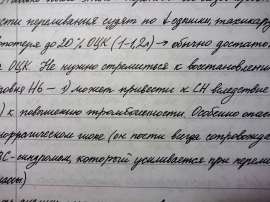 сти переливания судят по t одышки, тахикард
потере до 20% ОЦК (1-1,2л) → обычно достато
а ОЦК. Не нужно стремиться к восстановлени
ровня Нб – 1) может привести к СН вследствие
) к повышению тромбогенности. Особенно опас
моррагическом шоке (он почти всегда сопровожда
ВС-синдромом, который усиливается при перели
массы)